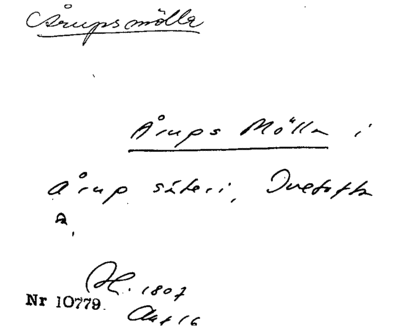 Årupsmölla
Årups Mölla i
Årup säteri, Ivetofta
H. 1807
Nr 10779.
Akt 16